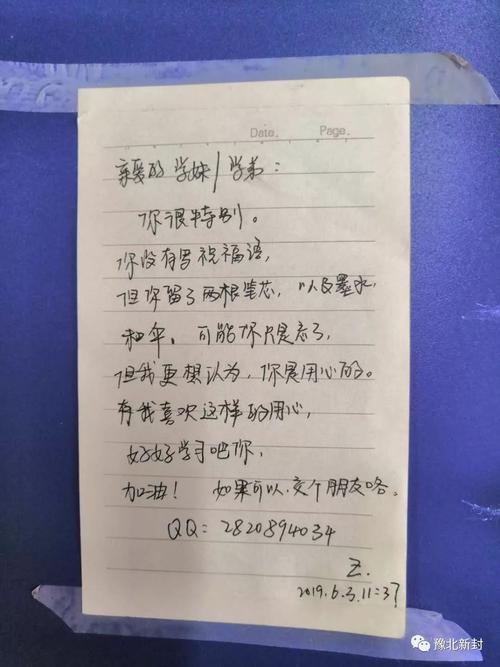 Date. Page.
亲爱的学妹/学弟：
你很特别。
你没有写祝福语，
但你留了两根笔芯，以及墨水，
和伞。可能你只是忘了，
但我更想认为，你是用心的。
有我喜欢这样的用心，
好好学习吧你，
加油！如果可以，交个朋友咯。
QQ：2820894034
Z.
2019.6.3.11:37
豫北新封